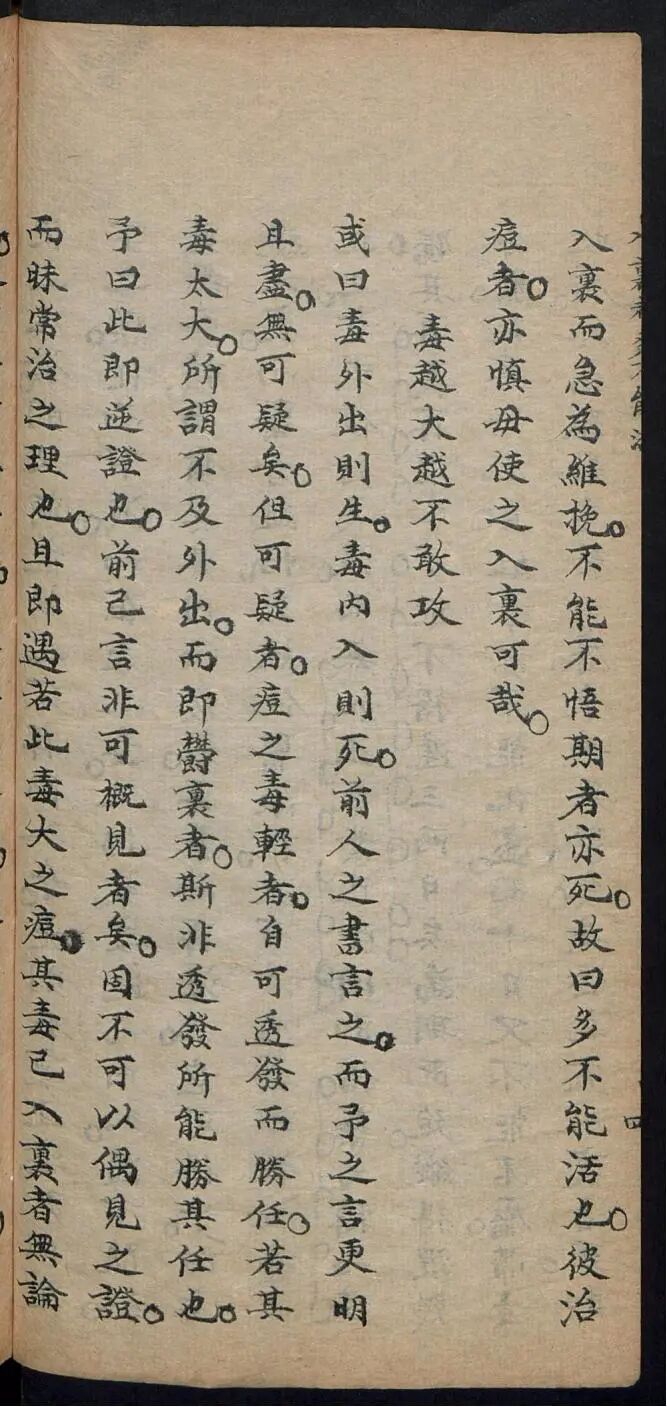 入裏而急為維挽。不能不悟期者亦死。故曰多不能活也。彼治
痘者。亦慎毋使之入裏可哉。
毒越大越不敢攻
或曰毒外出則生。毒內入則死。前人之書言之。而予之言更明
且盡。無可疑矣。但可疑者。痘之毒輕者。自可透發而勝任。若其
毒太大。所謂不及外出。而即欝裏者。斯非透發所能勝其任也。
予曰此即逆證也。前已言非可概見者矣。固不可以偶見之證。
而昧常治之理也。且即遇若此毒大之痘。其毒已入裏者無論